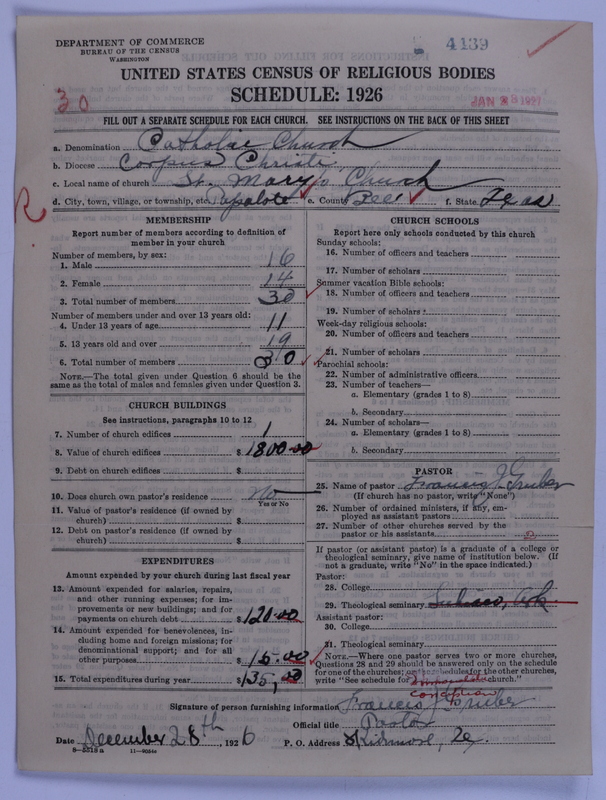 DEPARTMENT OF COMMERCE
BUREAU OF THE CENSUS
WASHINGTON
4139
UNITED STATES CENSUS OF RELIGIOUS BODIES
SCHEDULE: 1926
30
JAN 28 1927
FILL OUT A SEPARATE SCHEDULE FOR EACH CHURCH. SEE INSTRUCTIONS ON THE BACK OF THIS SHEET
a. Denomination Catholic Church
b. Diocese Corpus Christi
c. Local name of church St. Mary's Church
d. City, town, village, or township, etc. Papalote e. County Bee f. State Texas
R
MEMBERSHIP
Report number of members according to definition of
member in your church
Number of members, by sex:
1. Male 16
2. Female 14
3. Total number of members 30
Number of members under and over 13 years old:
4. Under 13 years of age 11
5. 13 years old and over 19
6. Total number of members 30
NOTE.—The total given under Question 6 should be the
same as the total of males and females given under Question 3.
CHURCH BUILDINGS
See instructions, paragraphs 10 to 12
7. Number of church edifices 1
8. Value of church edifices $ 1800.00
9. Debt on church edifices $
10. Does church own pastor's residence No
Yes or No
11. Value of pastor's residence (if owned by
church) $
12. Debt on pastor's residence (if owned by
church) $
EXPENDITURES
Amount expended by your church during last fiscal year
13. Amount expended for salaries, repairs,
and other running expenses; for im-
provements or new buildings; and for
payments on church debt $ 120.00
14. Amount expended for benevolences, in-
cluding home and foreign missions; for
denominational support; and for all
other purposes $ 15.00
15. Total expenditures during year $ 135.00
CHURCH SCHOOLS
Report here only schools conducted by this church
Sunday schools:
16. Number of officers and teachers
17. Number of scholars
Summer vacation Bible schools:
18. Number of officers and teachers
19. Number of scholars
Week-day religious schools:
20. Number of officers and teachers
21. Number of scholars
Parochial schools:
22. Number of administrative officers
23. Number of teachers—
a. Elementary (grades 1 to 8)
b. Secondary
24. Number of scholars—
a. Elementary (grades 1 to 8)
b. Secondary
PASTOR
25. Name of pastor Francis J Gruber
(If church has no pastor, write "None")
26. Number of ordained ministers, if any, em-
ployed as assistant pastors
27. Number of other churches served by the
pastor or his assistants
If pastor (or assistant pastor) is a graduate of a college or
theological seminary, give name of institution below. (If
not a graduate, write "No" in the space indicated.)
Pastor:
28. College
29. Theological seminary Subiaco, Ark
Assistant pastor:
30. College
31. Theological seminary
NOTE.—Where one pastor serves two or more churches,
Questions 28 and 29 should be answered only on the schedule
for one of the churches; on the schedules for the other churches,
write "See schedule for Immaculate church."
Conception
Signature of person furnishing information Francis J Gruber
Official title Pastor
Date December 28th, 1926 P. O. Address Skidmore, Tex.
8—5518 a 11—9034a